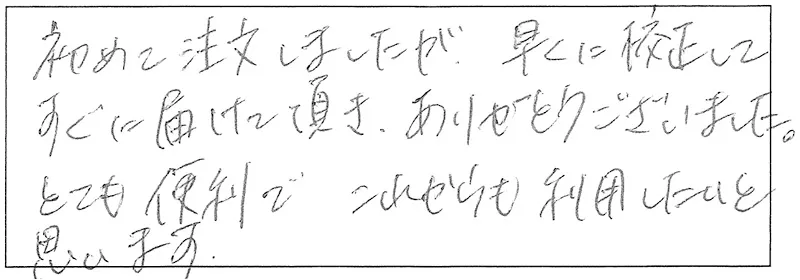 初めて注文しましたが、早くに校正して
すぐに届けて頂き、ありがとうございました。
とても便利で これからも利用したいと
思います。